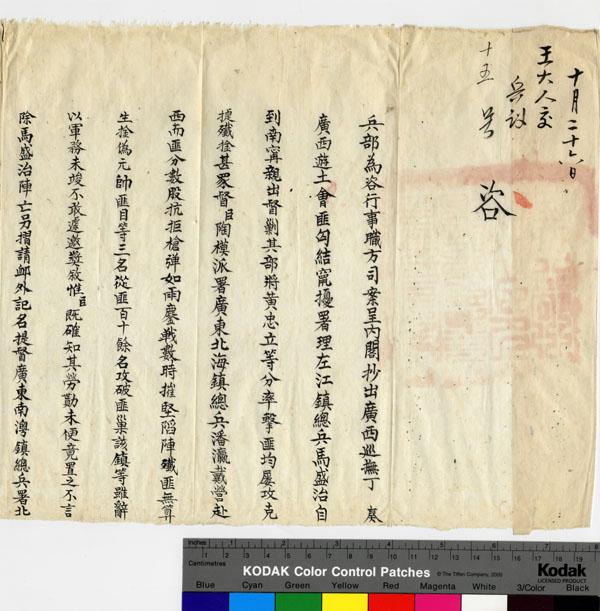 十月二十六日
王大人交
兵部
十五号
咨
兵部為咨行事職方司案呈內閣抄出廣西巡撫丁 奏
廣西遊土會匪勾結竄擾署理左江鎮總兵馬盛治自
到南寧親出督剿其部將黃忠立等分率擊匪均屢攻克
提殲捨甚眾督臣陶模派署廣東北海鎮總兵潘瀛戴營赴
西而匪分數股抗拒槍弹如雨鏖戰數時摧堅陷陣殲匪無算
生捨偽元帥匪目等三名從匪百十餘名攻破匪巢該鎮等雖辭
以軍務未竣不敢遽邀獎敍惟臣既確知其勞勩未便竟置之不言
除馬盛治陣亡另摺請卹外記名提督廣東南澳鎮總兵署北
Inches
Centimetres
KODAK Color Control Patches
© The Tiffen Company, 2000
Kodak
LICENSED PRODUCT
Blue Cyan Green Yellow Red Magenta White 3/Color Black